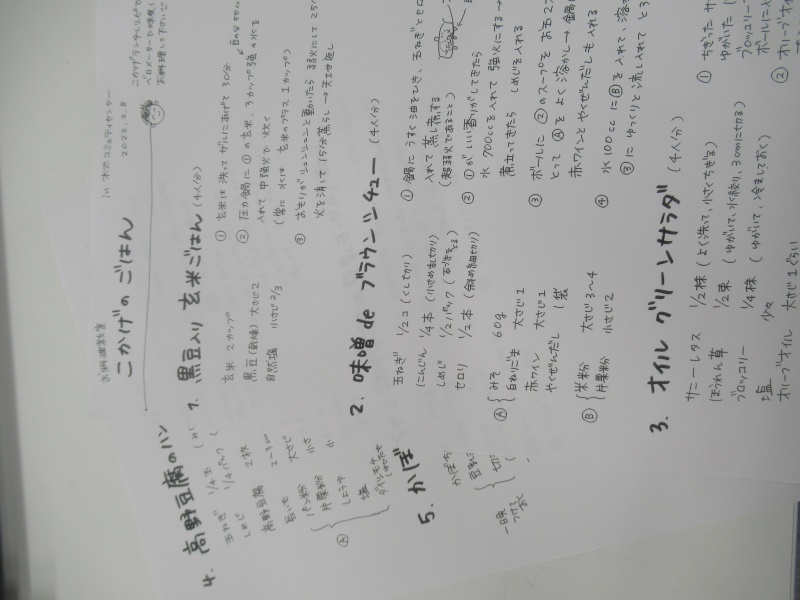 お料理教室
こかげの ごはん
in 木太コミュニティセンター
2022.2.8
1. 黒豆入り 玄米ごはん (4人分)
玄米 2カップ
黒豆(乾燥) 大さじ2
自然塩 小さじ2/3
① 玄米は洗って ザルにあげて 30分
② 圧力鍋に ①の玄米、3カップ強の水を
入れて 中強火で 炊く
(常に 水は 玄米のプラス1カップ)
③ おもりが シュンシュンと動いたら 弱火にして 25分
火を消して 15分蒸らし → 天地返し
2. 味噌de ブラウンシチュー (4人分)
玉ねぎ 1/2コ (くし切り)
にんじん 1/4本 (小さめ乱切り)
しめじ 1/2パック (石づきをとる)
セロリ 1/2本 (斜め細切り)
Ⓐ みそ 60g
白ねりごま 大さじ1
赤ワイン 大さじ1
やくぜんだし 1袋
Ⓑ 米粉 大さじ3〜4
片栗粉 小さじ2
① 鍋に うすく油をひき、玉ねぎとセロ
入れて 蒸し煮する
(超弱火であること)
② ①がいい香りがしてきたら
水 700ccを入れて 強火にする→
煮立ってきたら しめじを入れる
③ ボールに ②のスープを お玉2
とって Ⓐを よく溶かし→ 鍋に
赤ワインと やくぜんだしも入れる
④ 水100ccに Ⓑを入れて、溶
③に ゆっくりと 流し入れて とろ
3. オイル グリーンサラダ (4人分)
サニーレタス 1/2株 (よく洗って、小さくちぎる)
ほうれん草 1/2束 (ゆがいて、水絞り、3cmに切る)
ブロッコリー 1/4株 (ゆがいて、冷ましておく)
塩 少々
オリーブオイル 大さじ1ぐらい
① ちぎった サ
ゆがいた
ブロッコリー
ボールに入
② オリーブオイ
4. 高野豆腐のハン
玉ねぎ 1/4コ
しめじ 1/4パック
高野豆腐 2枚
パン粉 大さじ
片栗粉 小さ
Ⓐ しょうゆ 小
塩
5. かぼ
かぼち
豆乳